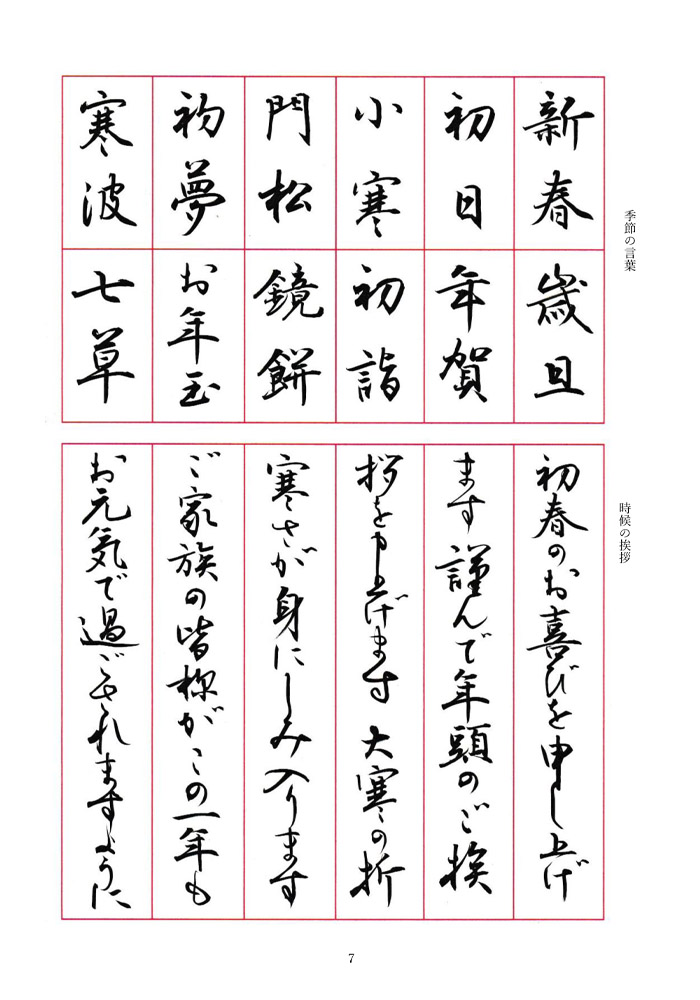 季節の言葉
新春
初日
小寒
門松
初夢
寒波
歳旦
年賀
初詣
鏡餅
お年玉
七草
時候の挨拶
初春のお喜びを申し上げ
ます 謹んで年頭のご挨
拶を申し上げます 大寒の折
寒さが身にしみ入ります
ご家族の皆様がこの一年も
お元気で過ごされますように
7